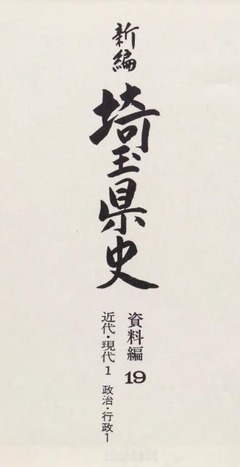 新編
埼玉県史
資料編 19
近代・現代 1 政治・行政 1